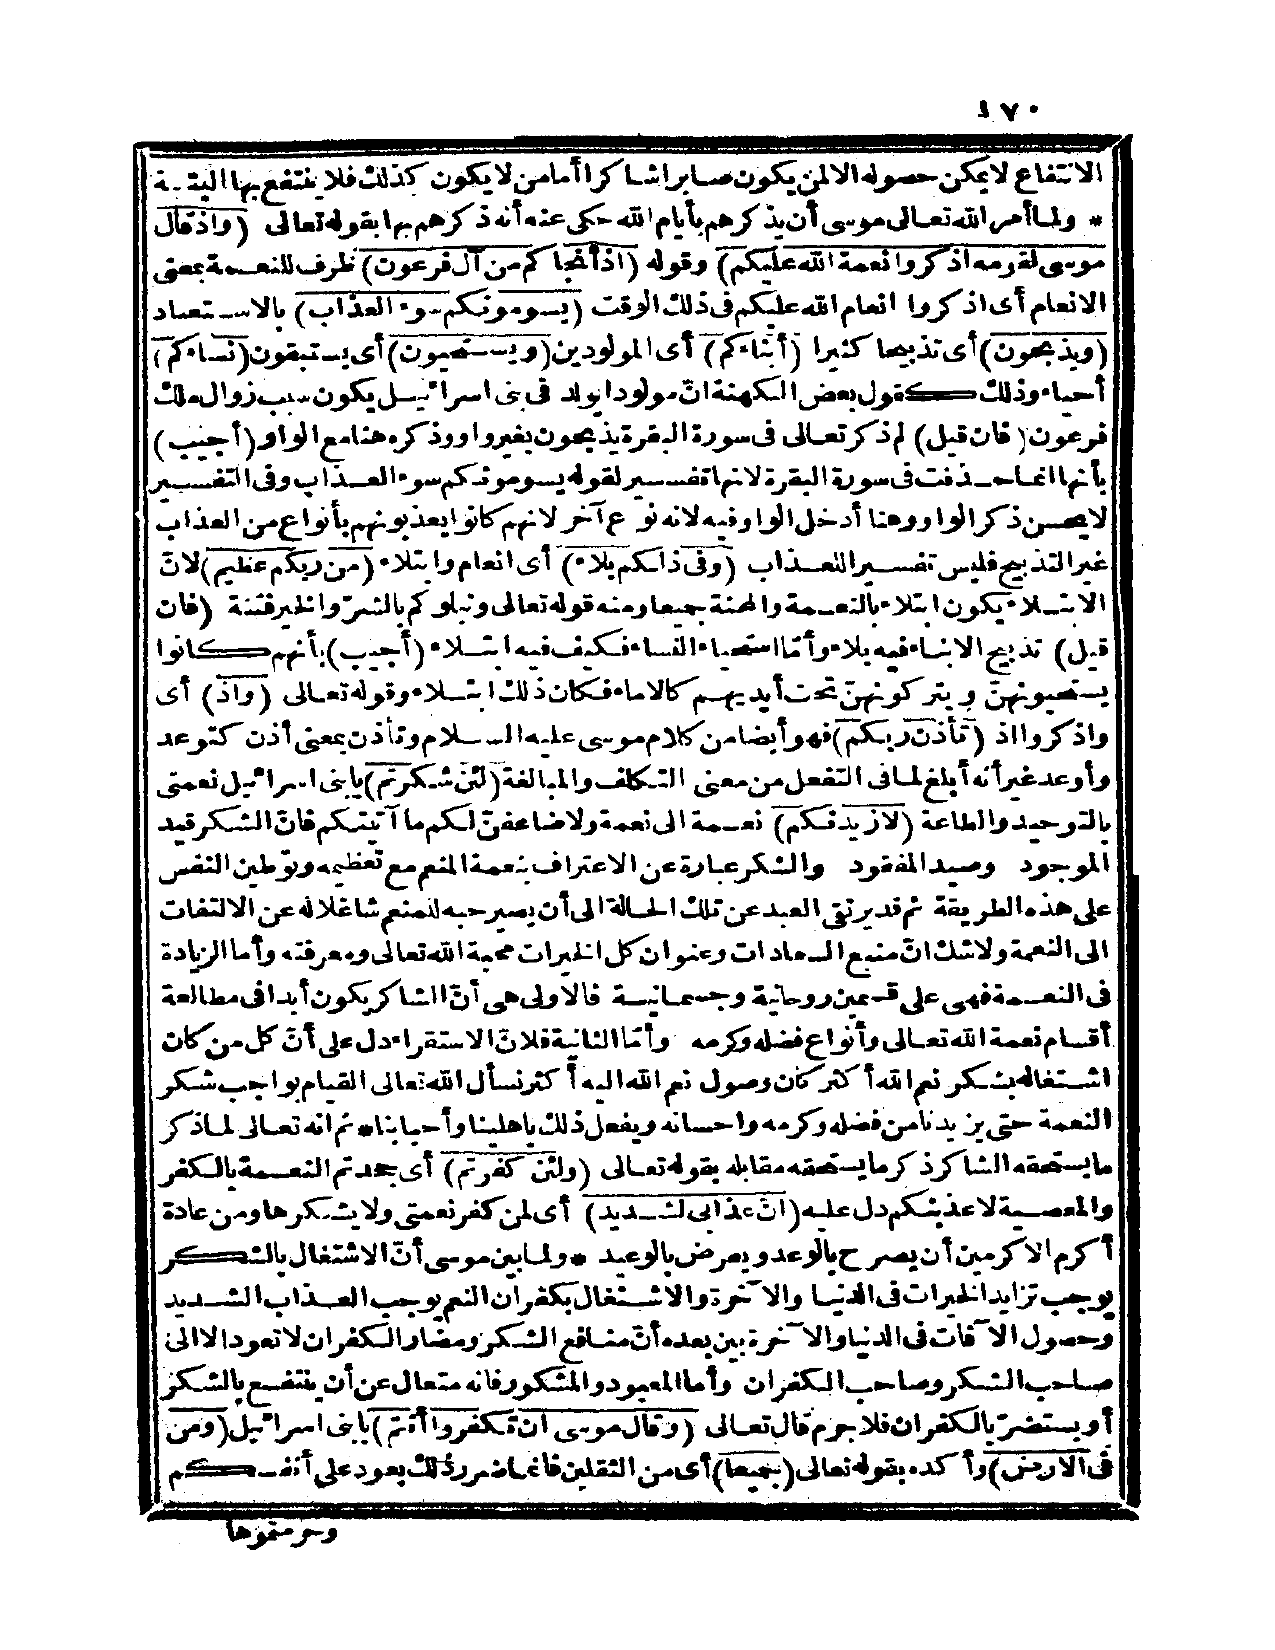 ١٧٠
الانتفاع لا يمكن حصوله الا لمن يكون صابرا شاكرا أما من لا يكون كذلك فلا ينتفع بها البتـة
* ولما أمر الله تعالى موسى أن يذكرهم بأيام الله حكى عنه أنه ذكرهم بها بقوله تعالى (واذ قال
موسى لقومه اذكروا نعمة الله عليكم) وقوله (اذ أنجاكم من آل فرعون) ظرف للنعمة بمعنى
الانعام أى اذكروا انعام الله عليكم فى ذلك الوقت (يسومونكم سوء العذاب) بالاستعباد
(ويذبحون) أى تذبيحا كثيرا (أبناءكم) أى المولودين (ويستحيون) أى يستبقون (نساءكم)
أحياء وذلك كقول بعض الكهنة انّ مولودا يولد فى بنى اسرائيل يكون سبب زوال ملك
فرعون (فان قيل) لم ذكر تعالى فى سورة البقرة يذبحون بغير واو وذكره هنا مع الواو (أجيب)
بأنها انما حذفت فى سورة البقرة لانها تفسير لقوله يسومونكم سوء العذاب وفى التفسير
لا يحسن ذكر الواو وهنا أدخل الواو فيه لانه نوع آخر لانهم كانوا يعذبونهم بأنواع من العذاب
غير التذبيح فليس تفسيرا للعذاب (وفى ذلكم بلاء) أى انعام وابتلاء (من ربكم عظيم) لانّ
الابتلاء يكون ابتلاء بالنعمة والمحنة جميعا ومنه قوله تعالى ونبلوكم بالشرّ والخير فتنة (فان
قيل) تذبيح الابناء فيه بلاء وأمّا استحياء النساء فكيف فيه ابتلاء (أجيب) بأنهم كانوا
يستحيونهنّ ويتركونهنّ تحت أيديهم كالاماء فكان ذلك ابتلاء وقوله تعالى (واذ) أى
واذكروا اذ (تأذن ربكم) فهو أيضا من كلام موسى عليه السلام وتأذن بمعنى أذن كتوعد
وأوعد غير أنه أبلغ لما فى التفعل من معنى التكلف والمبالغة (لئن شكرتم) يا بنى اسرائيل نعمتى
بالتوحيد والطاعة (لازيدنكم) نعمة الى نعمة ولاضاعفنّ لكم ما آتيتكم فانّ الشكر قيد
الموجود وصيد المفقود والشكر عبارة عن الاعتراف بنعمة المنعم مع تعظيمه وتوطين النفس
على هذه الطريقة ثم قد يرتقى العبد عن تلك الحالة الى أن يصير حبه للمنعم شاغلا له عن الالتفات
الى النعمة ولا شك انّ منبع السعادات وعنوان كل الخيرات محبة الله تعالى ومعرفته وأما الزيادة
فى النعمة فهى على قسمين روحانية وجسمانية فالاولى هى أنّ الشاكر يكون أبدا فى مطالعة
أقسام نعمة الله تعالى وأنواع فضله وكرمه وأمّا الثانية فلانّ الاستقراء دل على أنّ كل من كان
اشتغاله بشكر نعم الله أكثر كان وصول نعم الله اليه أكثر نسأل الله تعالى القيام بواجب شكر
النعمة حتى يزيدنا من فضله وكرمه واحسانه ويفعل ذلك باهلينا وأحبابنا * ثم انه تعالى لما ذكر
ما يستحقه الشاكر ذكر ما يستحقه مقابله بقوله تعالى (ولئن كفرتم) أى جحدتم النعمة بالكفر
والمعصية لاعذبنكم دل عليه (انّ عذابى لشديد) أى لمن كفر نعمتى ولا يشكرها ومن عادة
أكرم الاكرمين أن يصرح بالوعد ويعرض بالوعيد * ولما بين موسى أنّ الاشتغال بالشكر
يوجب تزايد الخيرات فى الدنيا والآخرة والاشتغال بكفران النعم يوجب العذاب الشديد
وحصول الآفات فى الدنيا والآخرة بين بعده أنّ منافع الشكر ومضار الكفران لا تعود الا الى
صاحب الشكر وصاحب الكفران وأما المعبود والمشكور فانه متعال عن أن ينتفع بالشكر
أو يستضرّ بالكفران فلا جرم قال تعالى (وقال موسى ان تكفروا أنتم) يا بنى اسرائيل (ومن
فى الارض) وأكده بقوله تعالى (جميعا) أى من الثقلين فانما ضرر ذلك يعود على أنفسكم
وحرمتموها